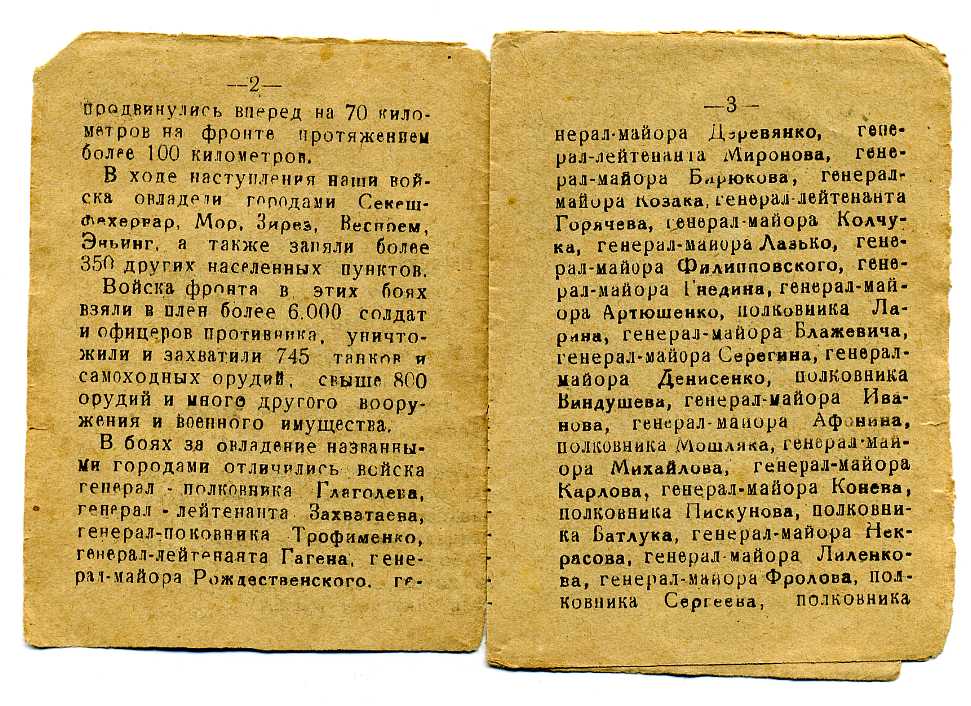 —2—
продвинулись вперед на 70 кило-
метров на фронте протяжением
более 100 километров.
В ходе наступления наши вой-
ска овладели городами Секеш-
фехервар, Мор, Зирез, Веспрем,
Эньинг, а также заняли более
350 других населенных пунктов.
Войска фронта в этих боях
взяли в плен более 6.000 солдат
и офицеров противника, уничто-
жили и захватили 745 танков и
самоходных орудий, свыше 800
орудий и много другого воору-
жения и военного имущества.
В боях за овладение названны-
ми городами отличились войска
генерал-полковника Глаголева,
генерал-лейтенанта Захватаева,
генерал-поковника Трофименко,
генерал-лейтенанта Гагена, гене-
рал-майора Рождественского, ге-
—3—
нерал-майора Деревянко, гене-
рал-лейтенанта Миронова, гене-
рал-майора Бирюкова, генерал-
майора Козака, генерал-лейтенанта
Горячева, генерал-майора Колчу-
ка, генерал-майора Лазько, гене-
рал-майора Филипповского, гене-
рал-майора Гнедина, генерал-май-
ора Артюшенко, полковника Ла-
рина, генерал-майора Блажевича,
генерал-майора Серегина, генерал-
майора Денисенко, полковника
Виндушева, генерал-майора Ива-
нова, генерал-майора Афонина,
полковника Мошляка, генерал-май-
ора Михайлова, генерал-майора
Карлова, генерал-майора Конева,
полковника Пискунова, полковни-
ка Батлука, генерал-майора Нек-
расова, генерал-майора Лиленко-
ва, генерал-майора Фролова, пол-
ковника Сергеева, полковника